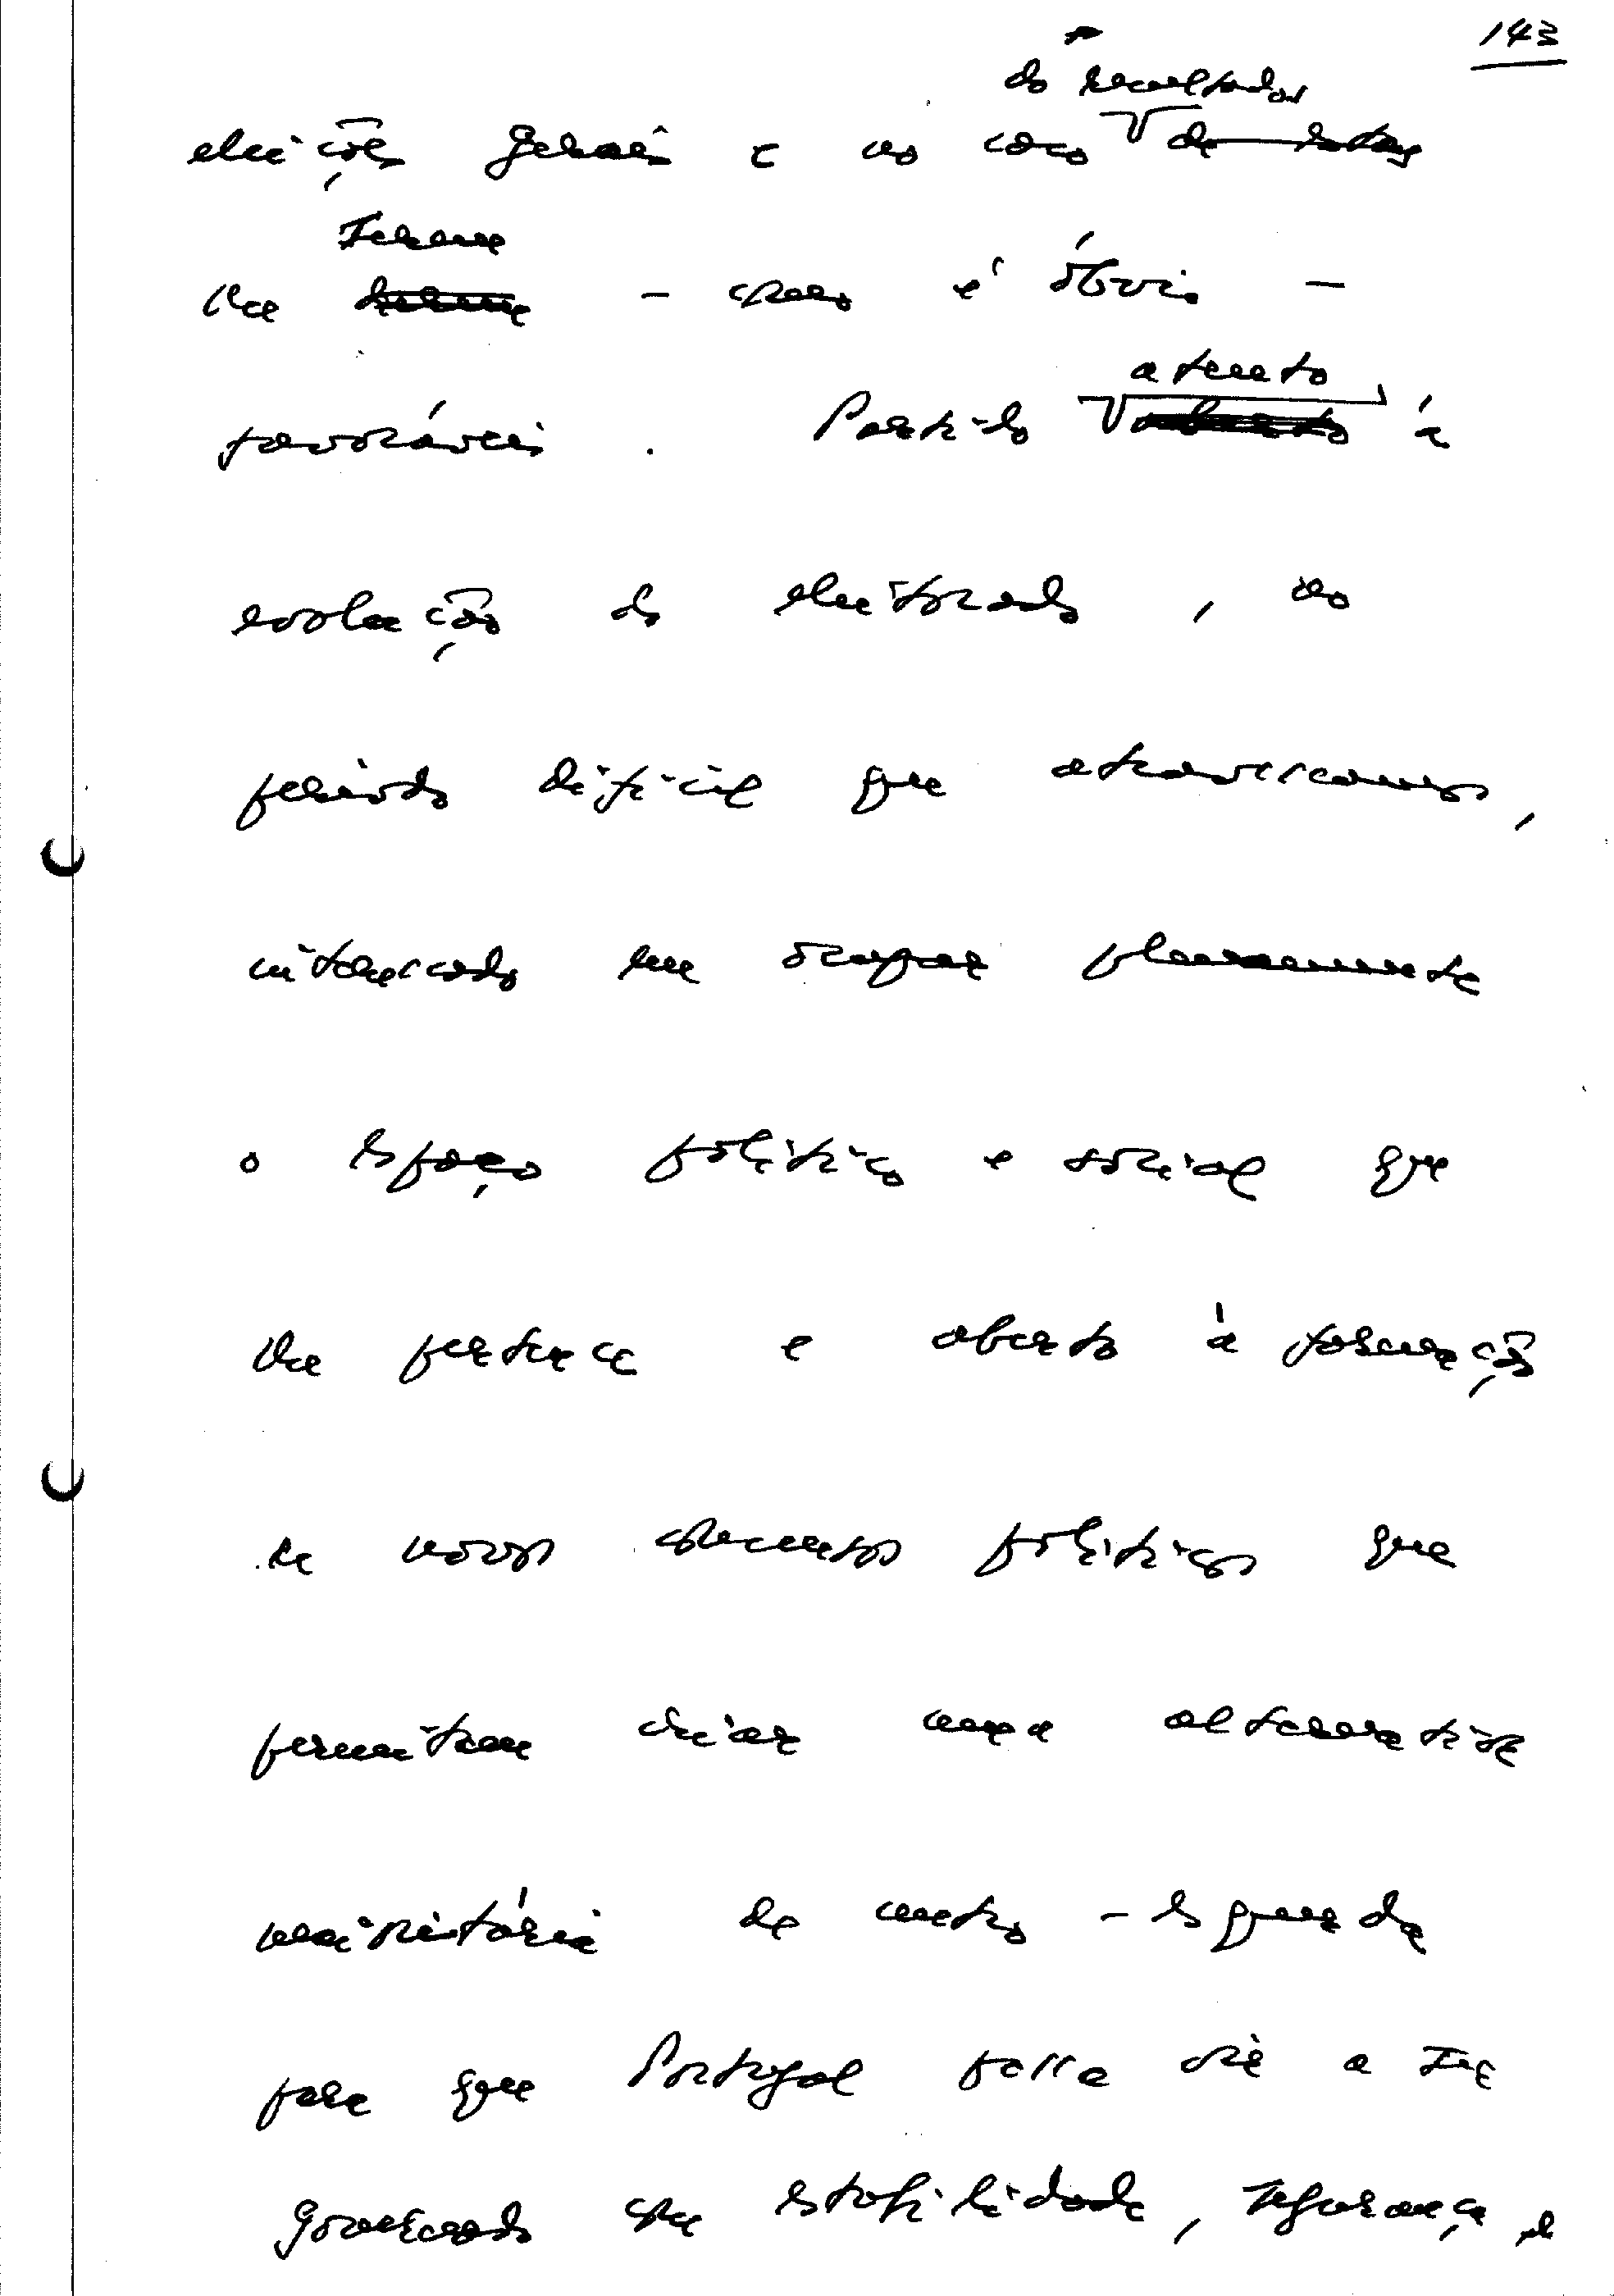 143
do resultados
eleições gerais e no caso de
lhe serem - como é óbvio -
favoráveis. Partido atento à
evolução do eleitorado, ao
período difícil que atravessamos,
interessado em ocupar plenamente
o espaço político e social que
lhe pertence e aberto à formação
de novos consensos políticos que
permitam criar uma alternativa
maioritária de centro-esquerda
para que Portugal possa vir a ser
governado com estabilidade, segurança e